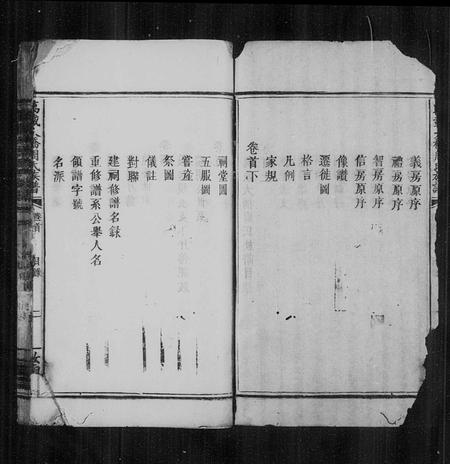 義房原序
禮房原序
智房原序
信房原序
像讚
遷徙圖
格言
凡例
家規
卷首下
祠堂圖
五服圖
嘗產
祭圖
儀註
對聯
建祠修譜名錄
重修譜系公舉人名
領譜字號
名派
卷首
目錄